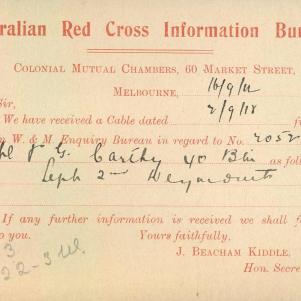 ralian Red Cross Information Bu
COLONIAL MUTUAL CHAMBERS, 60 MARKET STREET,
MELBOURNE,
Sir,
2/9/18
We have received a Cable dated
m W. & M. Enquiry Bureau in regard to No. 2052
J G Carthy 40 Btn as fol
Septr 2nd Weymouth
If any further information is received we shall f
to you. Yours faithfully,
J. BEACHAM KIDDLE,
Hon. Secre
3
22-3